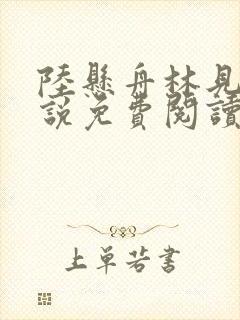 陸懸舟林見
說免費閱讀
上單若書